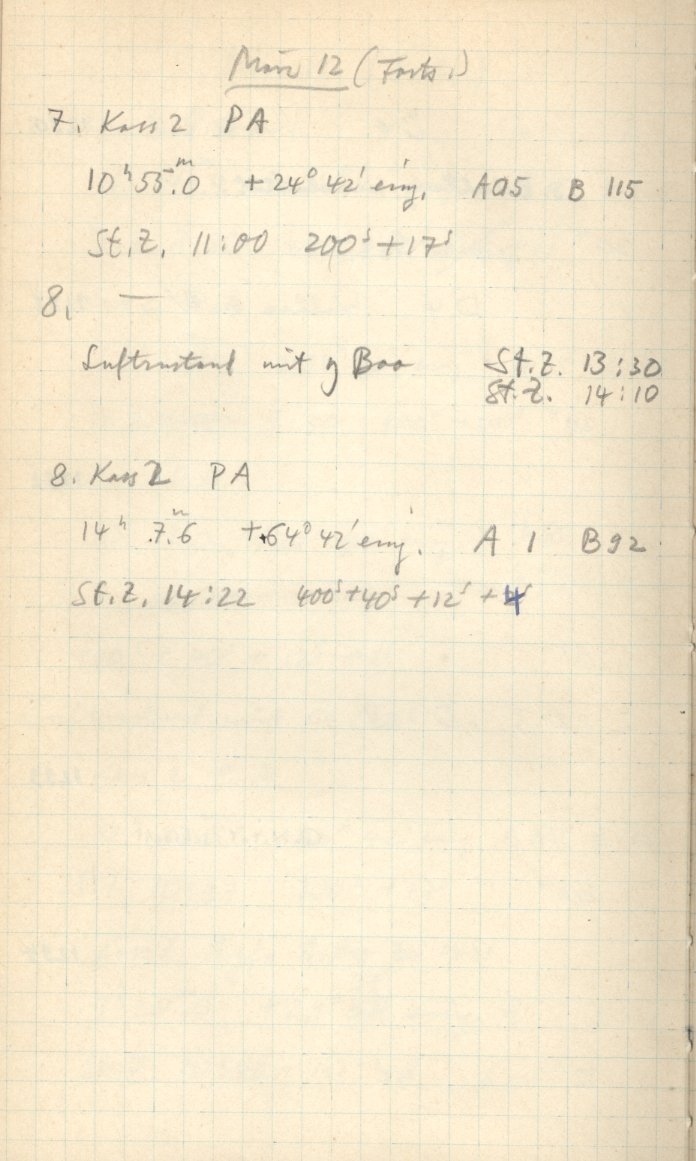 März 12 (Forts.)
7. Kass 2 PA
10ʰ 55ᵐ.0 +24° 42' eing. A 05 B 115
St.Z. 11:00 200ˢ + 17ˢ
8. —
Luftzustand mit η Boo St.Z. 13:30
St.Z. 14:10
8. Kass 2 PA
14ʰ 7ᵐ.6 +64° 42' eing. A 1 B 92
St.Z. 14:22 400ˢ + 40ˢ + 12ˢ + 4ˢ